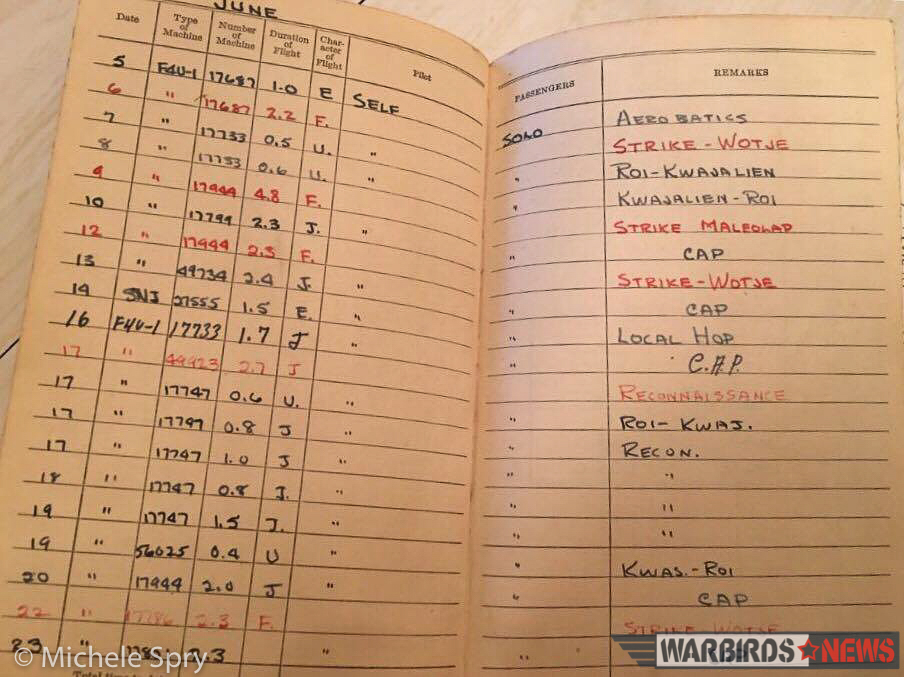 JUNE
Date Type of Machine Number of Machine Duration of Flight Character of Flight Pilot PASSENGERS REMARKS
5 F4U-1 17687 1.0 E SELF SOLO AEROBATICS
6 " 17687 2.2 F. STRIKE - WOTJE
7 " 17733 0.5 U. " " ROI-KWAJALIEN
8 " 17733 0.6 U. " " KWAJALIEN-ROI
9 " 17944 4.8 F. STRIKE MALEOLAP
10 " 2.3 J. " " CAP
12 " 17944 2.3 F. STRIKE-WOTJE
13 " 49734 2.4 J. " " CAP
14 SNJ 27555 1.5 E. " " LOCAL HOP
16 F4U-1 17733 1.7 J " " C.A.P.
17 " 49923 2.7 J RECONNAISSANCE
17 " 17747 0.6 U. " " ROI- KWAJ.
17 " 17747 0.8 J " " RECON.
17 " 17747 1.0 J " " "
18 " 17747 0.8 J. " " "
19 " 17747 1.5 J. " " "
19 " 56025 0.4 U " " KWAJ.-ROI
20 " 17944 2.0 J " " CAP
22 " 2.3 F. STRIKE WOTJE
23 " " "
© Michele Spry
WARBIRDS NEWS